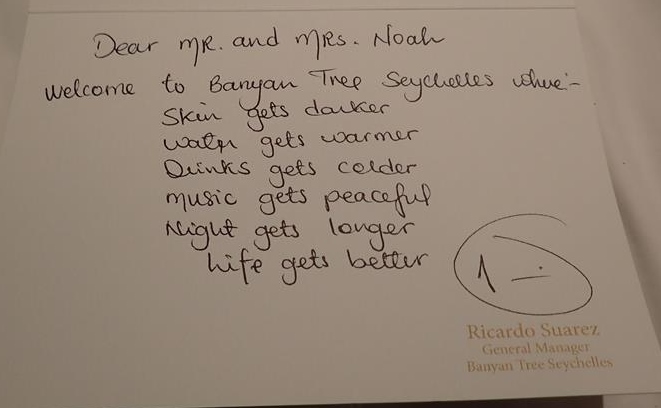 Dear MR. and MRs. Noah
Welcome to Banyan Tree Seychelles where:-
Skin gets darker
Water gets warmer
Drinks gets colder
music gets peaceful
Night gets longer
Life gets better
Ricardo Suarez
General Manager
Banyan Tree Seychelles